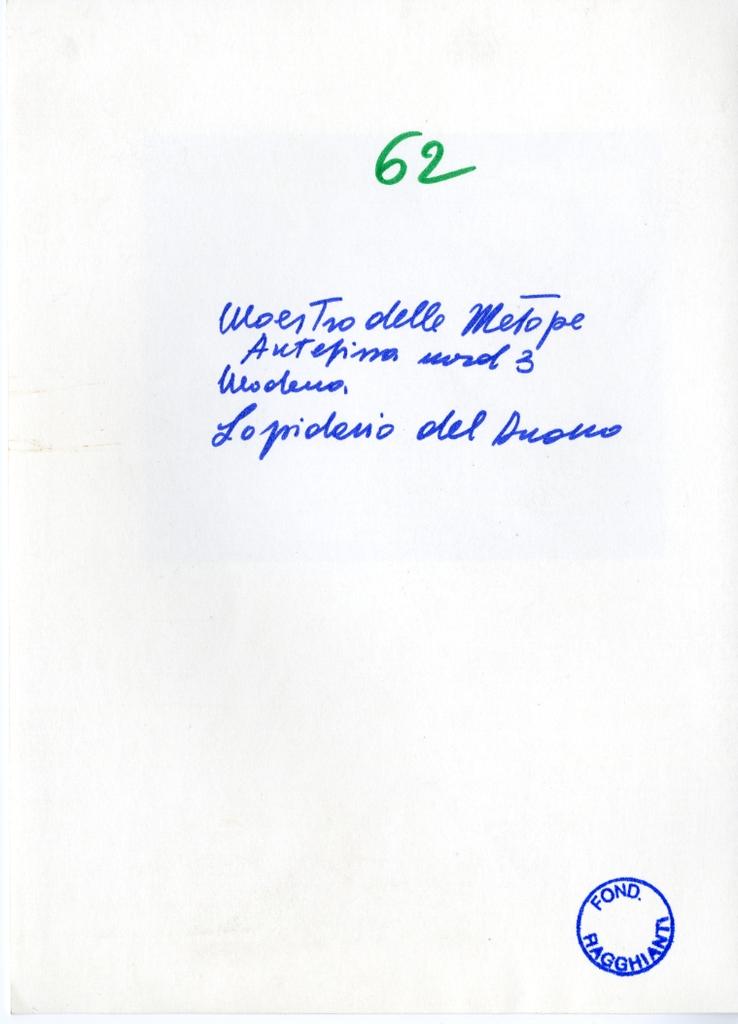 62
Maestro delle Metope
Antefissa nord 3
Modena.
Lapidario del Duomo
FOND.
RAGGHIANTI